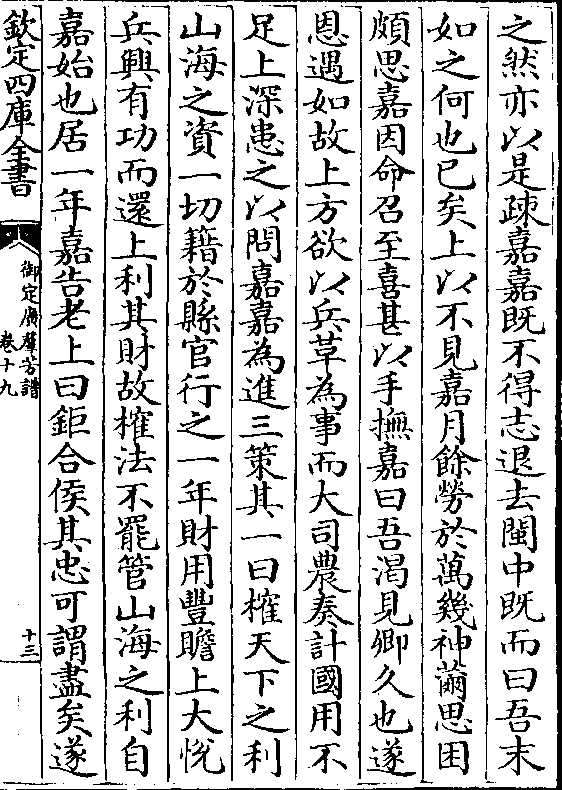 之然亦以是疎嘉嘉既不得志退去閩中既而曰吾末
如之何也已矣上以不見嘉月餘勞於萬幾神薾思困
頗思嘉因命召至喜甚以手撫嘉曰吾渴見卿久也遂
恩遇如故上方欲以兵革為事而大司農奏計國用不
足上深患之以問嘉嘉為進三策其一曰榷天下之利
山海之資一切籍於縣官行之一年財用豐贍上大悅
兵興有功而還上利其財故榷法不罷管山海之利自
嘉始也居一年嘉告老上曰鉅合侯其忠可謂盡矣遂
欽定四庫全書
御定廣羣芳譜
卷十九
十三